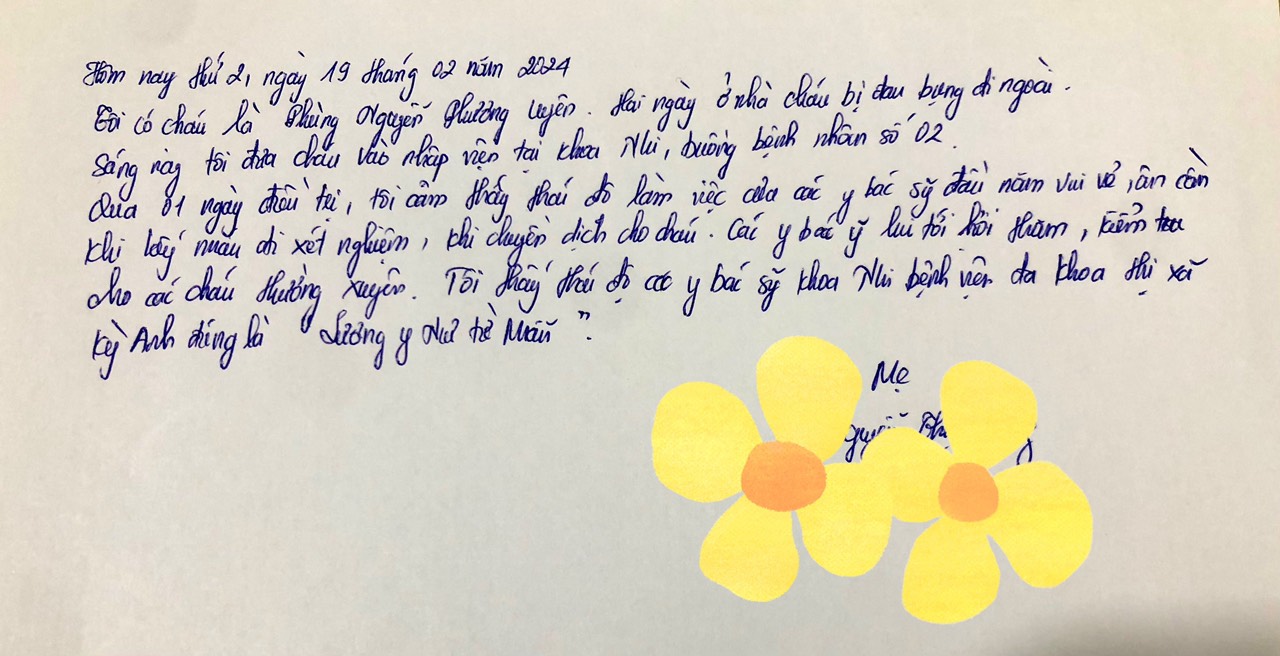 Hôm nay thứ 2, ngày 19 tháng 02 năm 2024
Tôi có cháu là Phùng Nguyễn Phương Uyên. Hai ngày ở nhà cháu bị đau bụng đi ngoài.
Sáng này tôi đưa cháu vào nhập viện tại khoa Nhi, buồng bệnh nhân số 02.
Qua 01 ngày điều trị, tôi cảm thấy thái độ làm việc của các y bác sỹ đầu năm vui vẻ, ân cần
khi lấy máu đi xét nghiệm, khi chuyền dịch cho cháu. Các y bác sỹ lui tới hỏi thăm, kiểm tra
cho các cháu thường xuyên. Tôi thấy thái độ các y bác sỹ khoa Nhi bệnh viện đa khoa thị xã
Kỳ Anh đúng là "Lương y Như từ Mẫu".
Mẹ